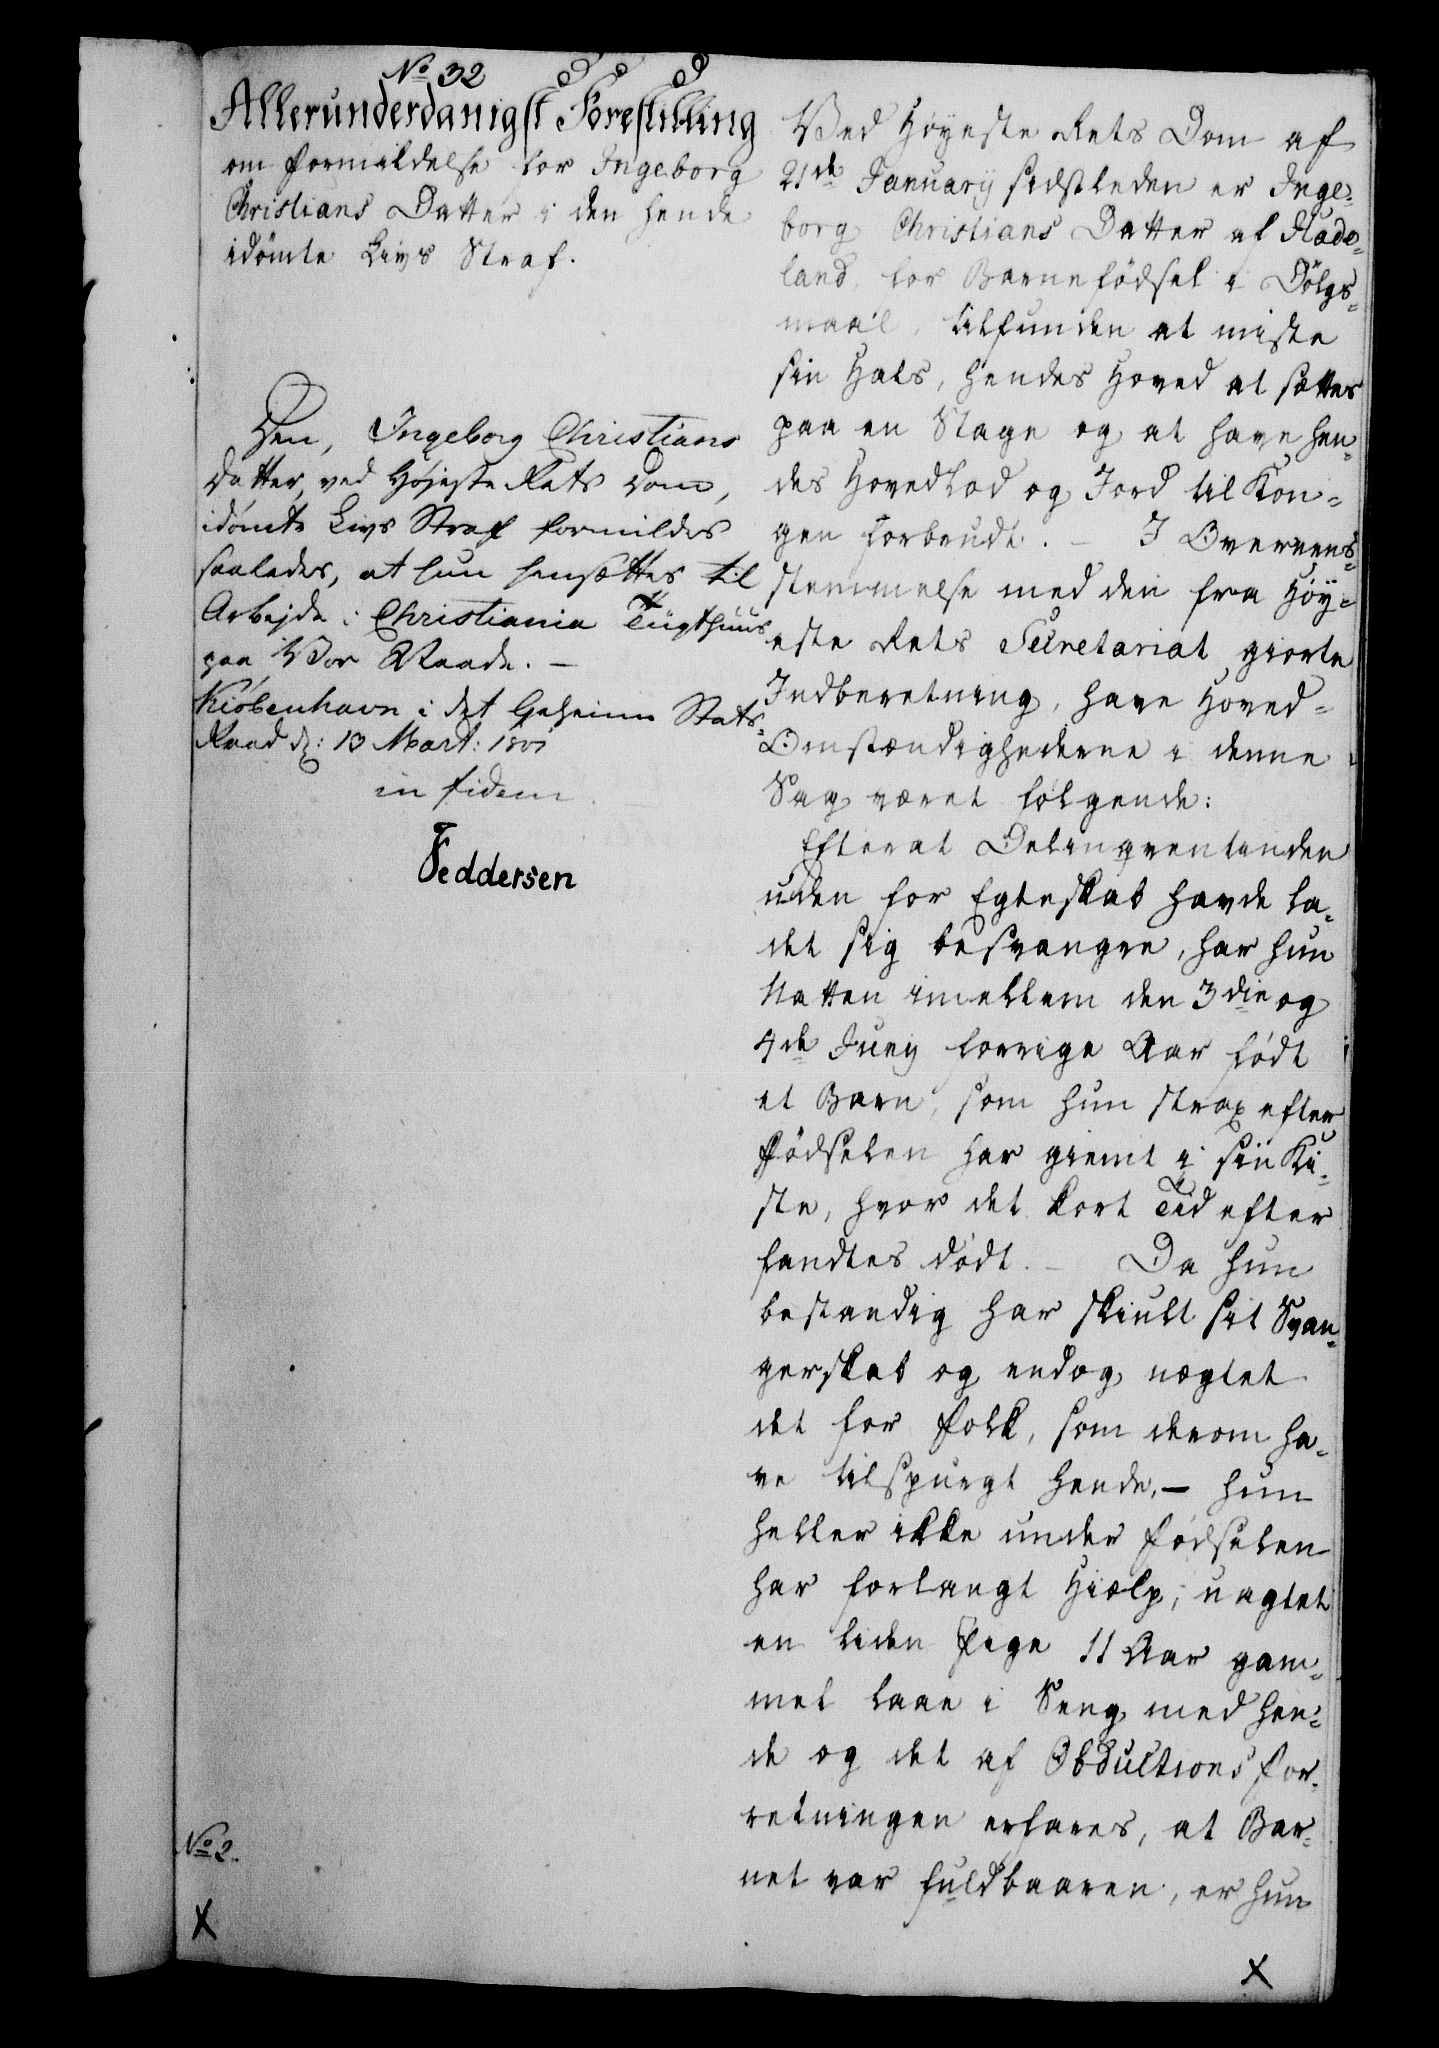 No 32
Allerunderdanigst Forestilling
om Formildelse for Ingeborg
Christians Datter i den hende
idömte Livs Straf.
Den, Ingeborg Christians
Datter, ved Højeste Rets Dom,
idömte Livs Straf formildes
saaledes, at hun hensættes til
Arbejde i Christiania Tügthuus
paa Vor Naade. —
Kiöbenhavn i det Geheime Stats-
Raad d: 13 Mart: 1801
in fidem
Feddersen
No 2.
X
Ved Høyeste Rets Dom af
21de Januarij sidstleden er Inge-
borg Christians Datter af Hade-
land, for Barnefödsel i Dölgs-
maal, tilfunden at miste
sin Hals, hendes Hoved at sættes
paa en Stage og at have hen-
des Hovedlod og Jord til Kon-
gen forbrudt. — I Overeens-
stemmelse med den fra Höy-
este Rets Secretariat giorte
Indberetning, have Hoved-
Omstændighederne i denne
Sag været fölgende:
Efterat Delinqventinden
uden for Egteskab havde la-
det sig besvangre, har hun
Natten imellem den 3die og
4de Junij forrige Aar födt
et Barn, som hun strax efter
Födselen har giemt i sin Ki-
ste, hvor det kort Tid efter
fandtes dödt. — Da hun
bestandig har skiult sit Svan-
gerskab og endog nægtet
det for Folk, som derom ha-
ve tilspurgt hende, — hun
heller ikke under Födselen
har forlangt Hiælp, uagtet
en liden Pige 11 Aar gam-
mel laae i Seng med hen-
de og det af Obductions For-
retningen erfares, at Bar-
net var fuldbaaren, er hun
X